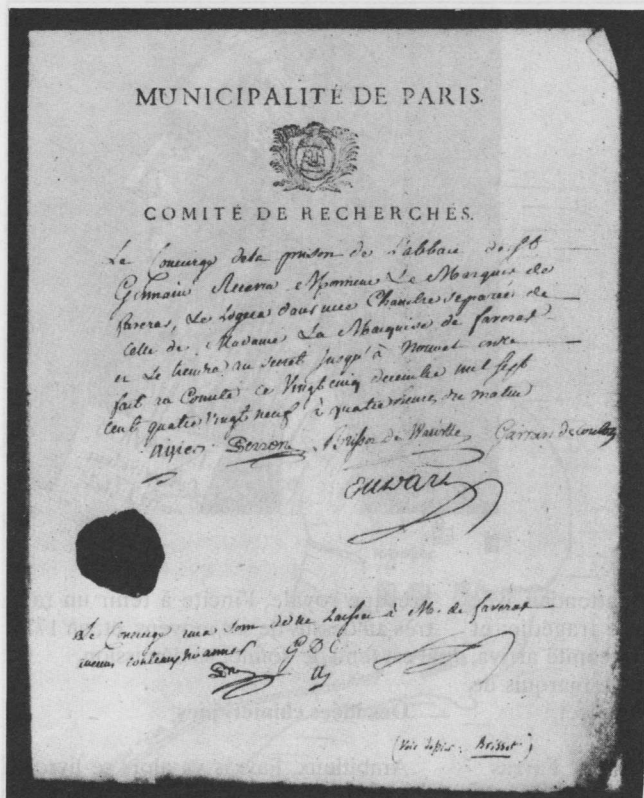 MUNICIPALITÉ DE PARIS.
COMITÉ DE RECHERCHES.
Le Concierge de la prison de L'abbaie de St
Germain Recevra Monsieur Le Marquis de
faveras, Le Logera dans une Chambre séparée de
Celle de Madame La Marquise de faveras
et Le tiendra au secret jusqu'à Nouvel ordre
fait au Comité ce Vingt cinq decembre mil sept
cent quatre vingt neuf à quatre heures du matin
agier Perron Brissot de Warville Garran de Coulon
oudart
Le Concierge aura soin de ne laisser à M. de faveras
aucuns couteaux ni armes GDC
(Voir dossier : Brissot)